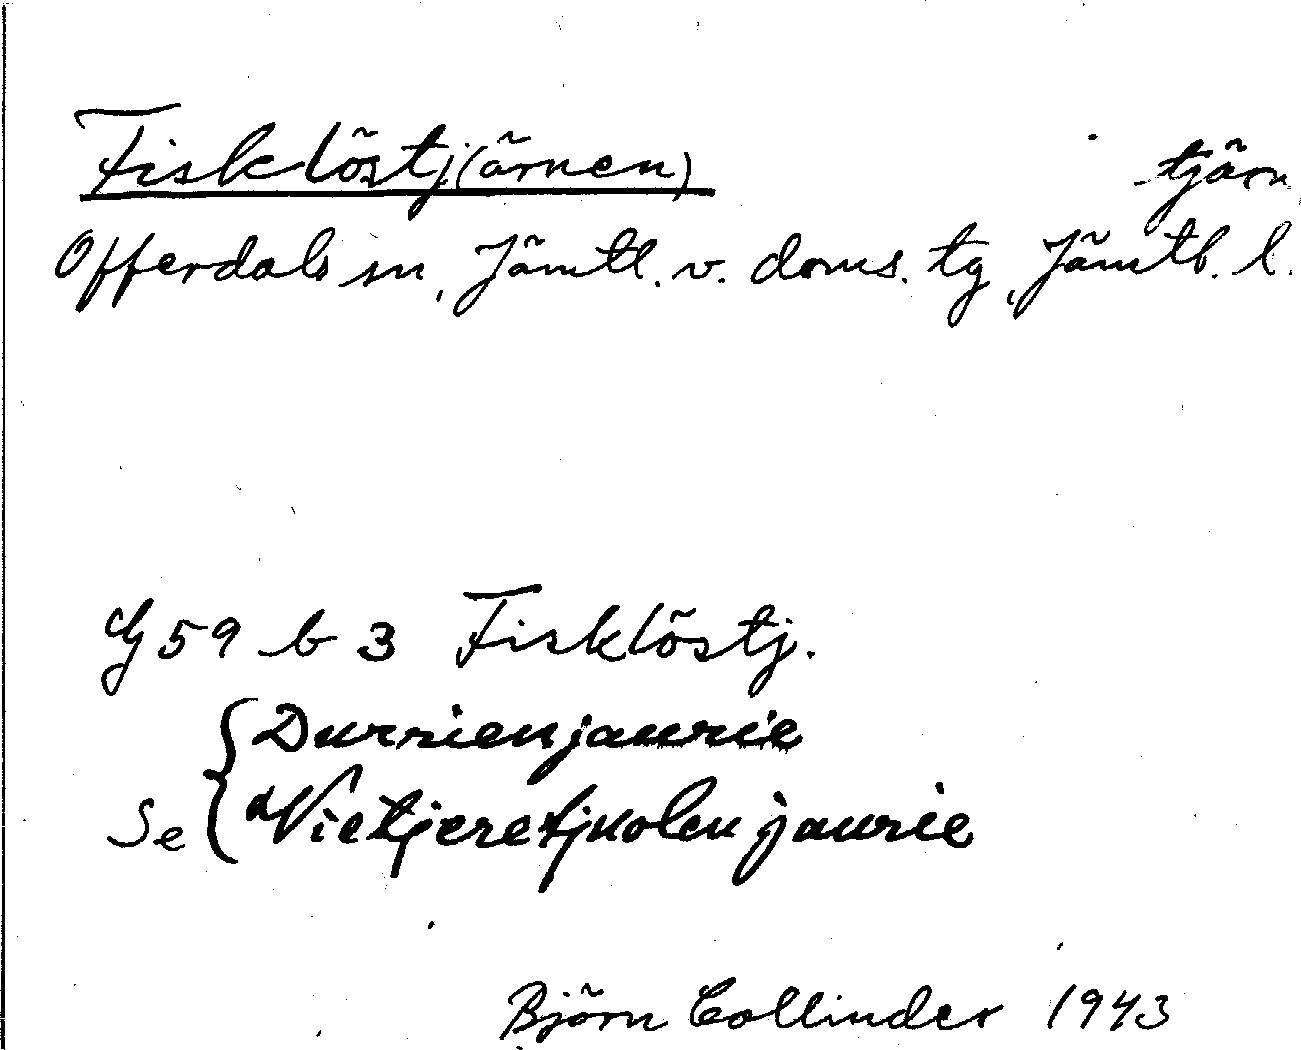 Fisklöstj(ärnen) tjärn
Offerdals sn, Jämtl. v. doms. tg, Jämtl. l.
G 59 b 3 Fisklöstj.
Se { Durrienjaurie
Vietjeretjuolenjaurie
Björn Collinder 1943